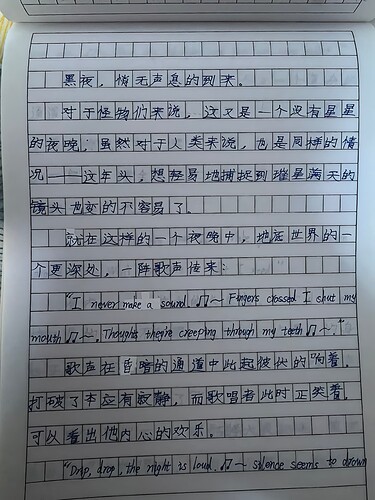 黑夜，悄无声息的到来。
对于怪物们来说，这又是一个没有星星
的夜晚；虽然对于人类来说，也是同样的情
况——这年头，想轻易地捕捉到堆星满天的
镜头也变的不容易了。
就在这样的一个夜晚中，地底世界的一
个更深处，一阵歌声传来：
"I never make a sound ♫～ Fingers crossed I shut my
mouth ♫～. Thoughts they're creeping through my teeth ♫～."
歌声在昏暗的通道中此起彼伏的响着，
打破了本应有寂静，而歌唱者此时正笑着，
可以看出他内心的欢乐。
"Drip, drop, the night is loud ♫～ silence seems to drown